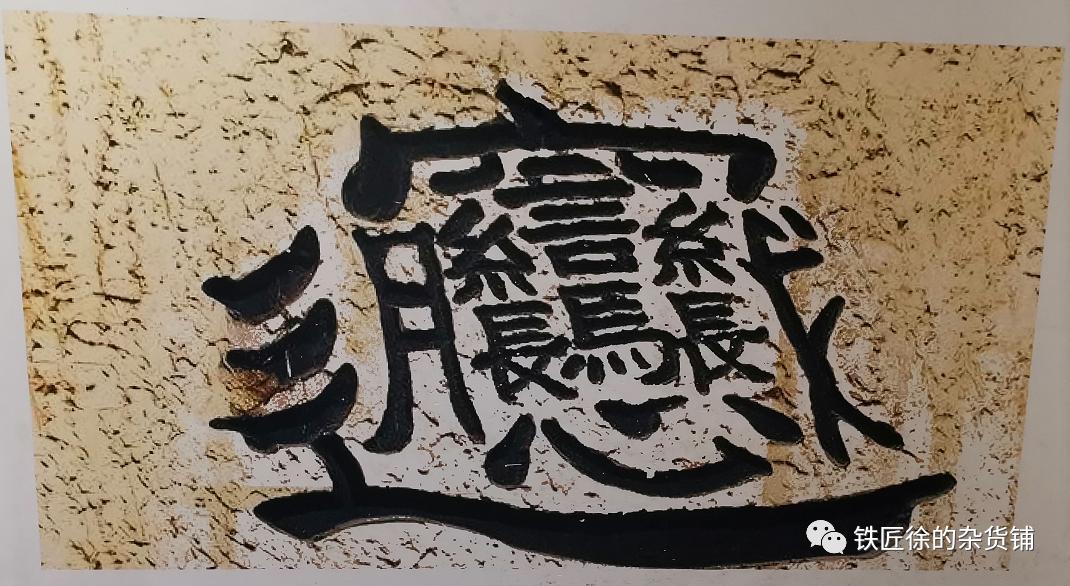 𰻞
铁匠徐的杂货铺